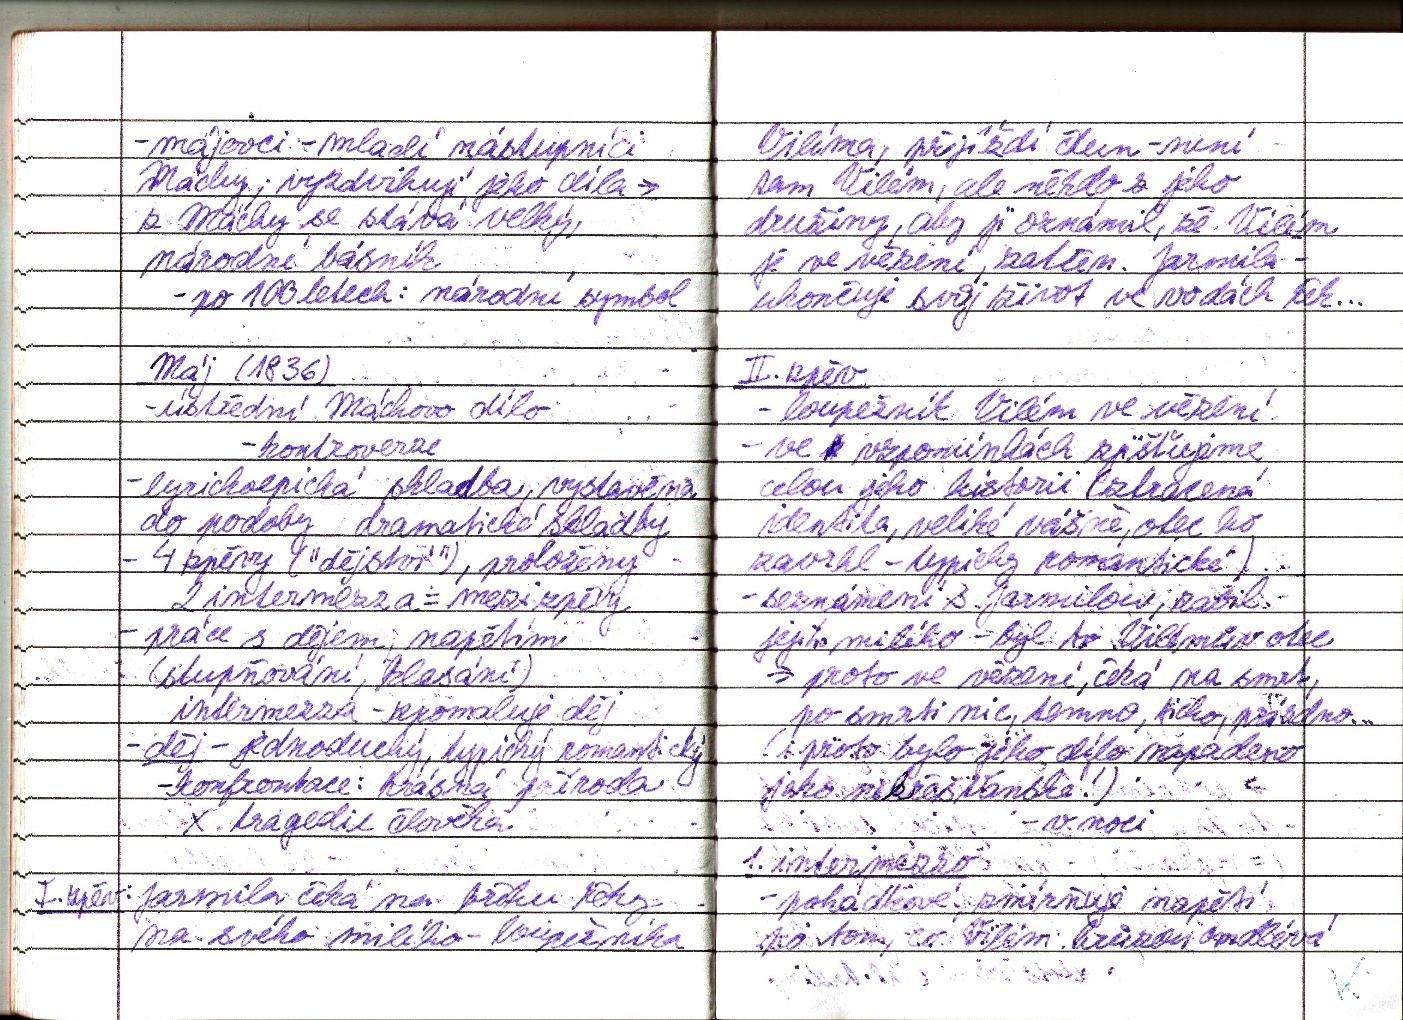 - májovci - mladí následníci
Máchy, vyzdvihují jeho díla →
z Máchy se stává velký,
národní básník
- po 100 letech: národní symbol
Máj (1836)
- ústřední Máchovo dílo
- kontroverze
- lyrickoepická skladba, vystavěna
do podoby dramatické skladby
- 4 zpěvy ("dějství"), proloženy
2 intermezza = mezizpěvy
- práce s dějem, napětím
(stupňování, klesání)
intermezza - zpomaluje děj
- děj - jednoduchý, typický romantický
- konfrontace: krásná příroda
X tragedie člověka
I. zpěv: Jarmila čeká na břehu řeky
na svého milého - loupežníka
Viléma, přijíždí člun - není
sam Vilém, ale někdo z jeho
družiny, aby jí oznámil, že Vilém
je ve vězení, zatčen. Jarmila -
ukončuje svůj život ve vodách řek...
II. zpěv
- loupežník Vilém ve vězení
- ve vzpomínkách zjišťujeme
celou jeho historii (ztracená
identita, veliké vášně, otec ho
zavrhl - typicky romantické)
- seznámení s Jarmilou, zabil
jejího milého - byl to Vilémův otec
→ proto ve vězení, čeká na smrt,
po smrti nic, temno, ticho, prázdno...
(i proto bylo jeho dílo napadeno
jako nekřesťanské!)
- v noci
1. intermezzo
- pohádkové, zmírňuje napětí
po tom, co Vilém hrůzou omdlévá